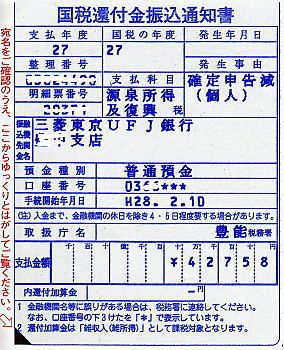 国税還付金振込通知書
支払年度 国税の年度 発生年月日
27 27
整理番号 支払科目 発生事由
源泉所得 確定申告減
明細票番号 及復興 税 (個人)
振込先金融機関名 三菱東京UFJ銀行
中支店
預金種別 普通預金
口座番号 ***
手続開始年月日 H28. 2.10
(注) 入金まで、金融機関の休日を除き4・5日程度要する場合があります。
取扱庁名 豊能税務署
支払金額 ¥42758
内還付加算金 円
1 金融機関名等に誤りがある場合は、税務署に連絡してください。
なお、口座番号の下3けたを「*」で表示しています。
2 還付加算金は「雑収入(雑所得)」として課税対象となります。
宛名をご確認のうえ、ここからゆっくりとはがしてご覧ください。